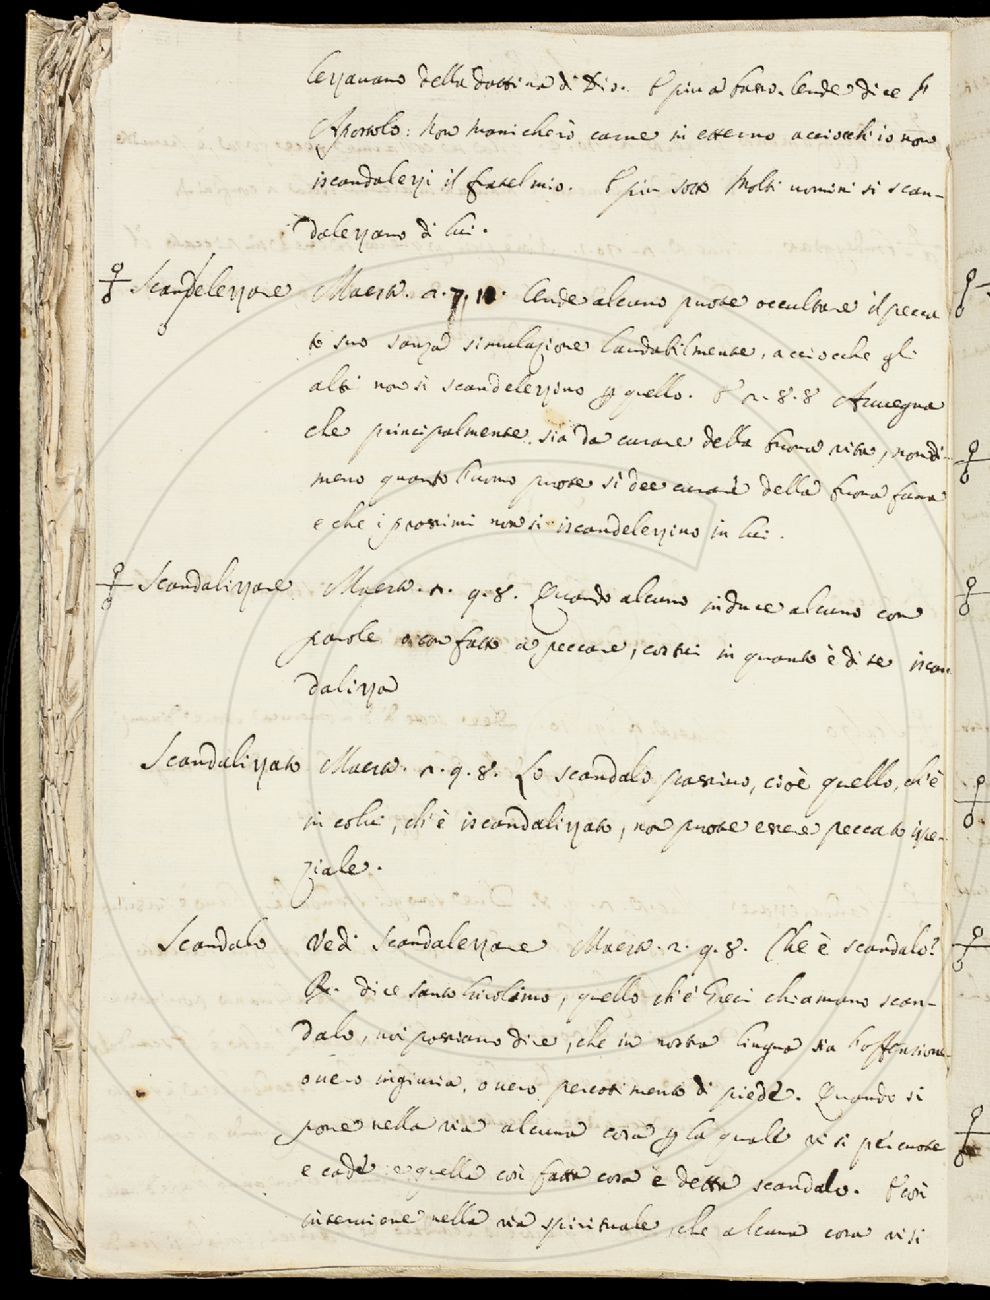 lezzavano della dottrina di Dio. E piu a basso. Onde dice l'
Apostolo: Non manicherò carne in etterno acciocch' io non
iscandalezzi il fratel mio. E piu sotto Molti uomini si scan-
dalezzano di lui.
Scandelezzare Maestr. 2. 7, 10. Onde alcuno puote occultare il pecca
to suo sanza simulazione laudabilmente, acciocche gli
altri non si scandelezzino p quello. E 2. 8. 8 Avvegna
che principalmente sia da curare della buona vita, nondi-
meno quanto l'uomo puote si dee curare della buona fama
e che i prossimi non si iscandelezzino in lui.
Scandalizzare Maestr. 2. 9. 8. Quando alcuno induce alcuno con
parole o con fatto a peccare, costui in quanto è di se iscan-
dalizza
Scandalizzato Maestr. 2. 9. 8. Lo scandalo passivo, cioè quello, ch' è
in colui, ch' è iscandalizzato, non puote essere peccato ispe-
ziale.
Scandalo Vedi Scandalezzare Maestr. 2. 9. 8. Che è scandalo?
R. dice santo Girolamo, quello ch' e' Greci chiamano scan-
dalo, noi possiamo dire, che in nostra lingua sia l'offensione
ovvero ingiuria, ovvero percotimento di piede. Quando si
pone nella via alcuna cosa p la quale vi si percuote
e cade: e quella così fatta cosa è detta scandalo. E così
interviene nella via spirituale, che alcuna cosa vi si